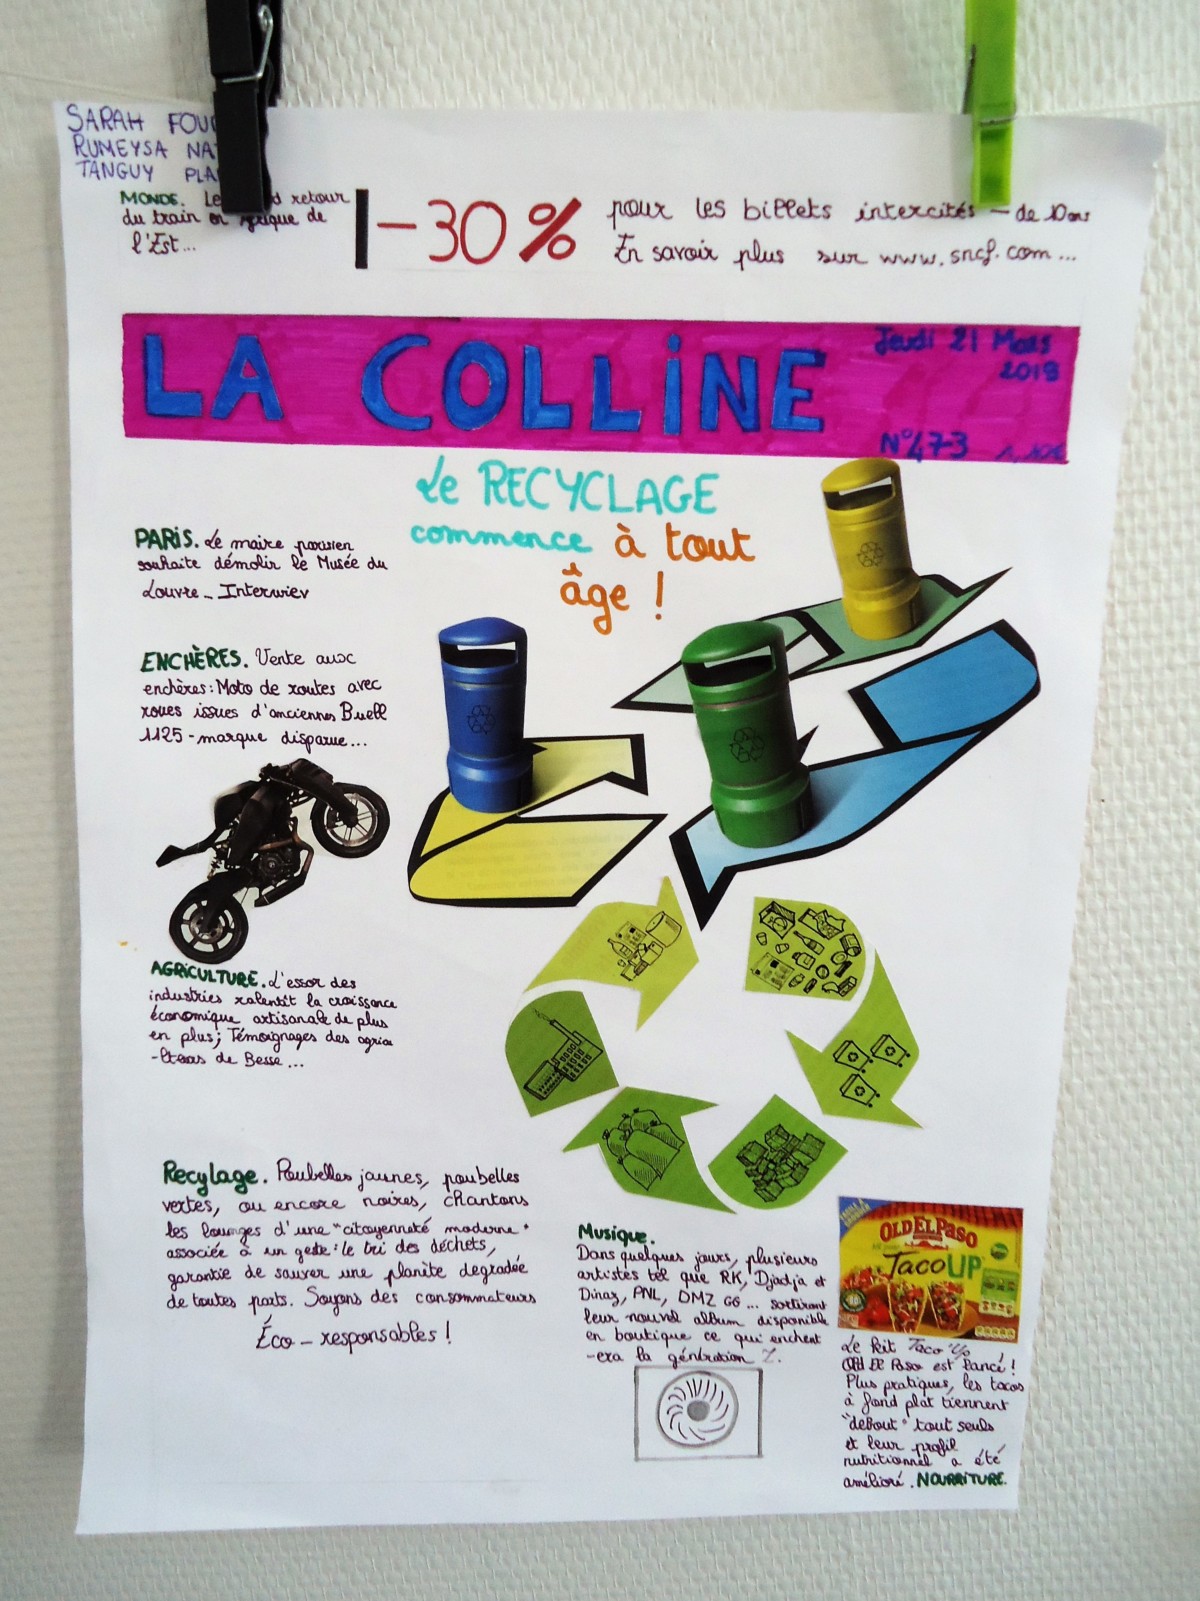 SARAH FOU
RUMEYSA NA
TANGUY PLA
MONDE. Le retour
du train en Afrique de
l'Est...
-30% pour les billets intercités - de 10 ans
En savoir plus sur www.sncf.com...
LA COLLINE
Jeudi 21 Mars
2019
N°47-3
Le RECYCLAGE
commence à tout
âge !
PARIS. Le maire parisien
souhaite démolir le Musée du
Louvre _ Interwiev
ENCHÈRES. Vente aux
enchères: Moto de routes avec
roues issues d'anciennes Buell
1125 - marque disparue...
AGRICULTURE. L'essor des
industries ralentît la croissance
économique artisanale de plus
en plus; Témoignages des agricu
-lteurs de Besse...
Recylage. Poubelles jaunes, poubelles
vertes, ou encore noires, chantons
les louanges d'une "citoyenneté moderne"
associée à un geste: le tri des déchets,
garantie de sauver une planète degradée
de toutes parts. Soyons des consommateurs
Éco-responsables !
Musique.
Dans quelques jours, plusieurs
artistes tel que RK, Djadja et
Dinaz, PNL, DMZ GG ... sortiront
leur nouvel album disponible
en boutique ce qui enchent
-era la génération Z.
OLD EL PASO
Taco UP
Le kit Taco'Up
Old El Paso est lancé !
Plus pratiques, les tacos
à fond plat tiennent
"debout" tout seuls
et leur profil
nutritionnel a été
amélioré. NOURRITURE.